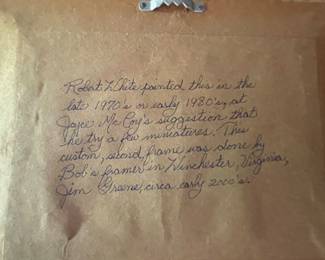 Robert White painted this in the
late 1970's or early 1980's, at
Joyce McCoy's suggestion that
he try a few miniatures. This
custom, second frame was done by
Bob's framer in Winchester, Virginia,
Jim Greene, circa early 2000's.